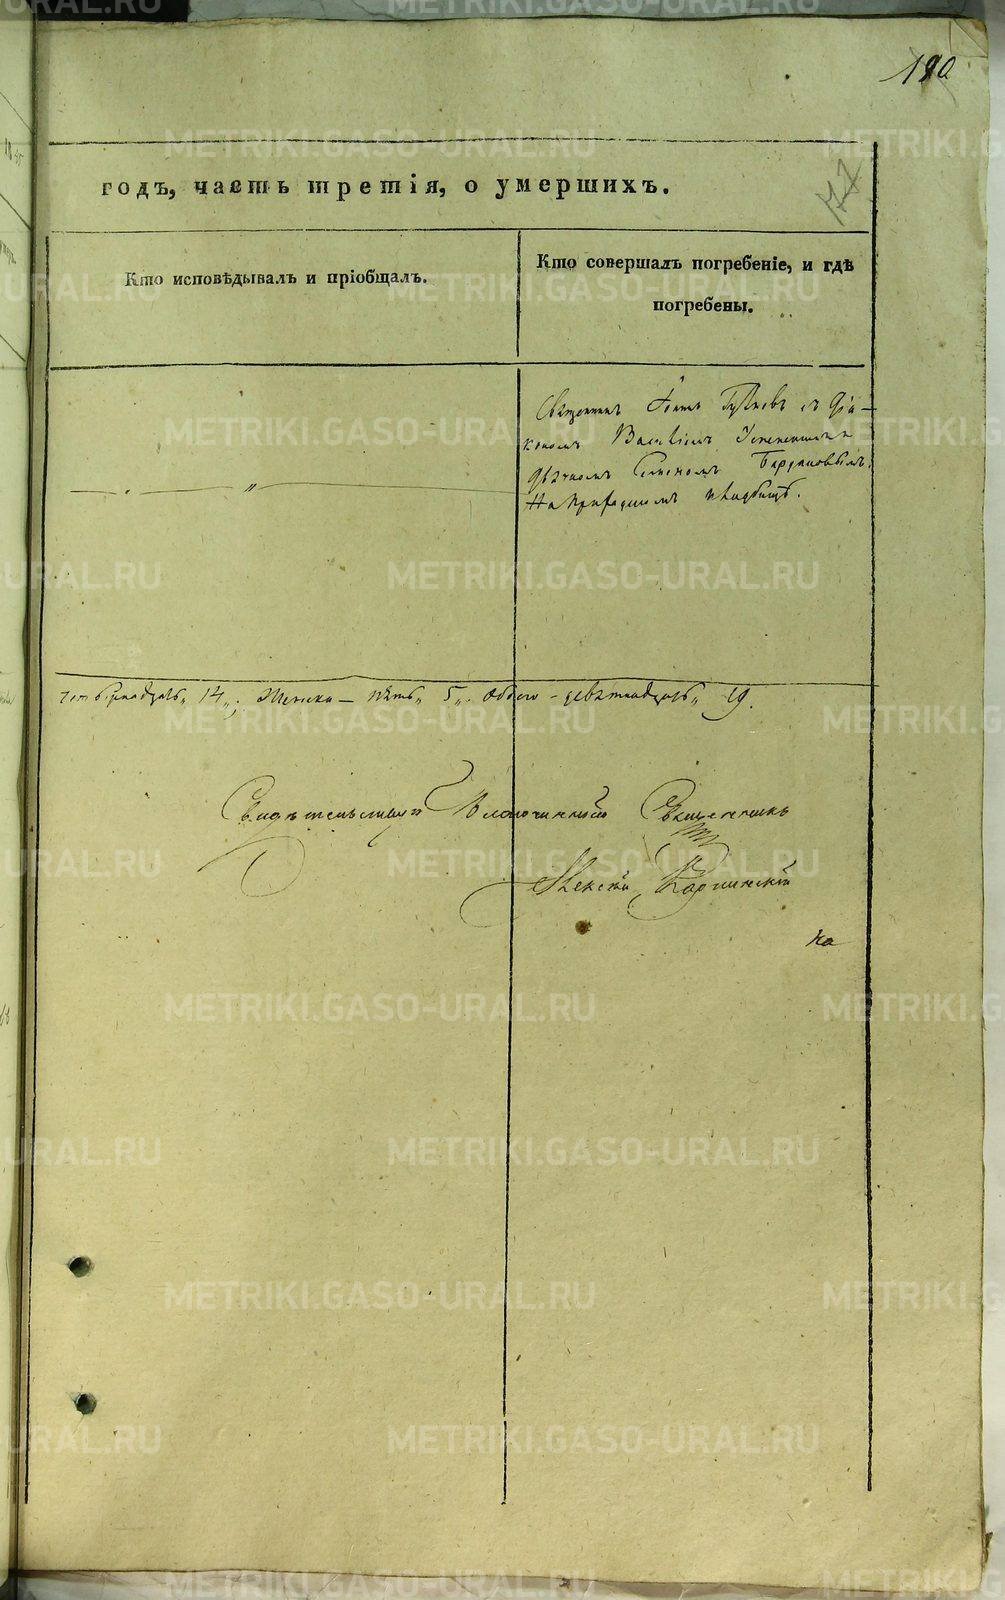 190
годъ, часть третія, о умершихъ.
Кто исповѣдывалъ и пріобщалъ.
Кто совершалъ погребеніе, и гдѣ
погребены.
Священникъ съ Діа-
кономъ Василіемъ Успенскимъ
дьячкомъ Семеномъ
На приходскомъ кладбищѣ.
четырнадцать„ 14„; Женска — пять„ 5„. Обоего - девятнадцать„ 19.
Свидѣтельствуя Благочинный Священникъ
Алексѣй Карпинскій
ка
METRIKI.GASO-URAL.RU